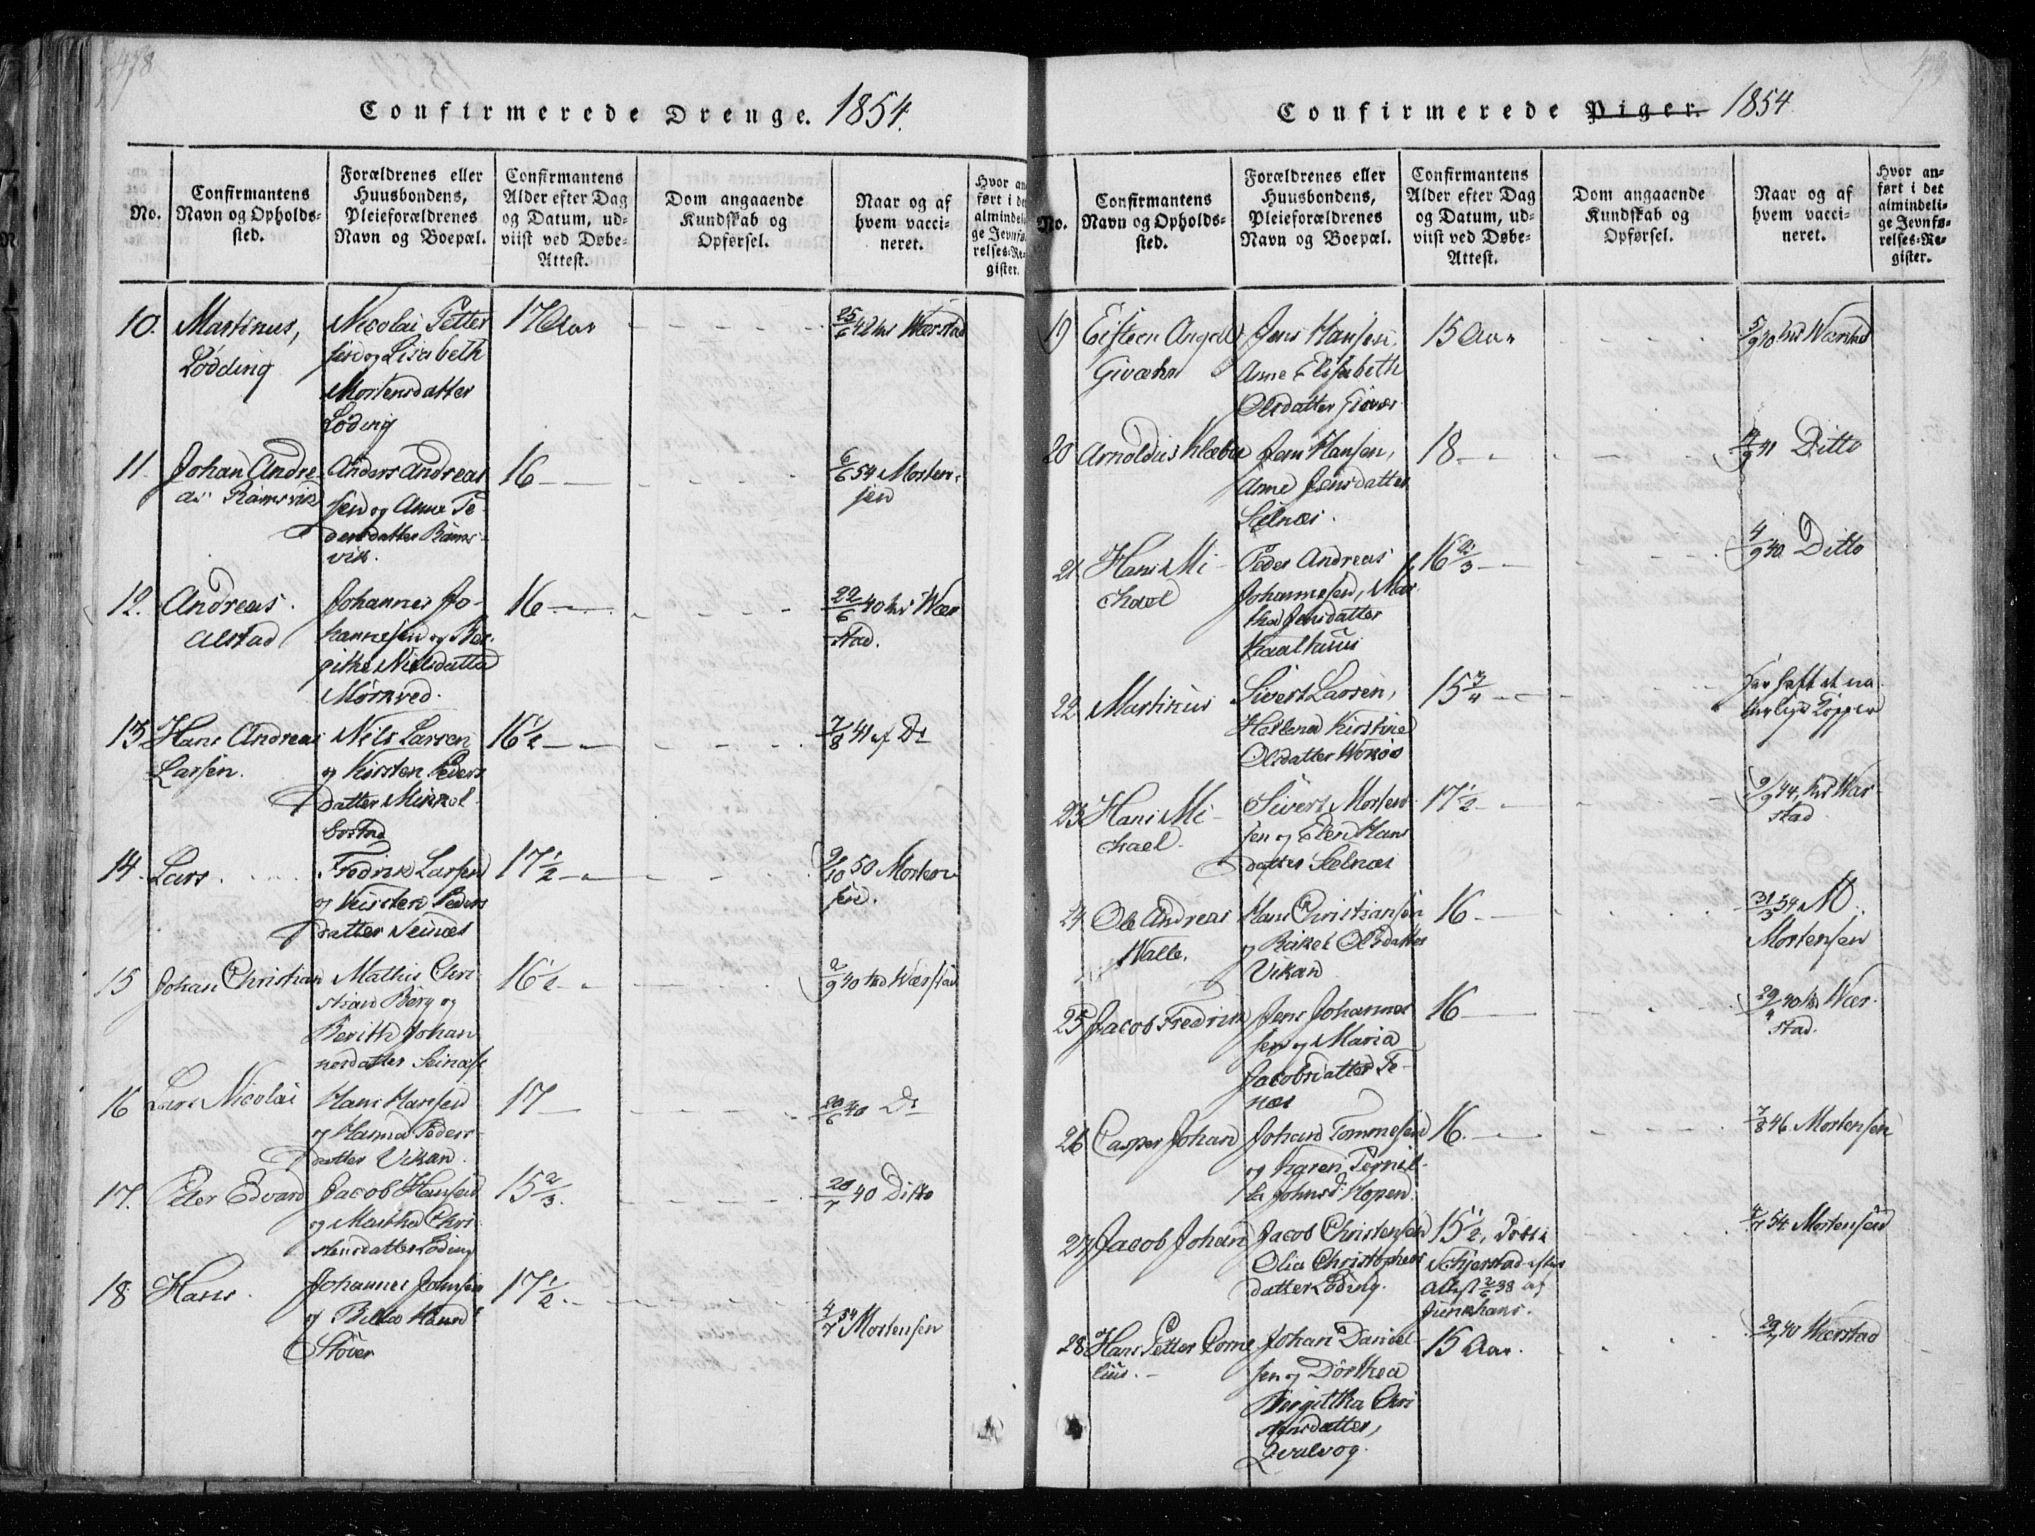 478
Confirmerede Drenge. 1854.
No.
Confirmantens
Navn og Opholds-
sted.
Forældrenes eller
Huusbondens,
Pleieforældrenes
Navn og Boepæl.
Confirmantens
Alder efter Dag
og Datum, ud-
viist ved Døbe-
Attest.
Dom angaaende
Kundskab og
Opførsel.
Naar og af
hvem vacci-
neret.
Hvor an
ført i de
almindeli
ge Jevnfø
relses-Re
gister.
10. Martinus,
Lødding
Nicolai Petter
sen og Lisabeth
Mortensdatter
Løding
17 Aar
25/6 42 hr Wærstad
11. Johan Andre
as Ramsvik
Anders Andreas
sen og Anne Pe-
dersdatter Rams-
vik.
16
6/6 54 Morten-
sen
12. Andreas
Alstad
Johannes Jo-
hannesen og Ber-
githe Nielsdatter
Mørkved.
16
22/6 40 hr Wær
stad.
13 Hans Andreas
Larsen.
Nils Larsen
og Kirsten Peders
datter Mikkel-
bostad
16 1/2
7/8 41 af Do
14. Lars
Fredrik Larsen
og Kirsten Peders
datter Seines
17 1/2
9/10 50 Morten
sen.
15 Johan Christian
Mathis Chri
stian Berg og
Berith Johan
nesdatter Seinæs
16 1/2
2/9 40 hr Wærstad
16 Lars Nicolai
Hans Hansen
og Hanna Peders-
datter Vikan.
17
20/6 40 Do
17. Peter Edvard
Jacob Hansen
og Martha Chri
stensdatter Løding
15 2/3.
20/7 40 Ditto
18 Hans.
Johannes Johnsen
og
Støver
17 1/2
4/7 54 Mortensen
Confirmerede Piger. 1854
No.
Confirmantens
Navn og Opholds-
sted.
Forældrenes eller
Huusbondens,
Pleieforældrenes
Navn og Boepæl.
Confirmantens
Alder efter Dag
og Datum, ud-
viist ved Døbe-
Attest.
Dom angaaende
Kundskab og
Opførsel.
Naar og af
hvem vacci-
neret.
Hvor an-
ført i det
almindeli-
ge Jevnfø-
relses-Re-
gister.
19 Eisteen Angell
Givæhr
Jens Hansen,
Anne Elisabeth
Olsdatter Givær
15 Aar
5/9 40 hr Wærstad
20 Arnoldus Klæboe
Jens Hansen,
Anne Jensdatter
Selnæs.
18
41 Ditto
21. Hans Mi-
chael
Peder Andreas
Johannesen, Mar
tha Jensdatter
Kaalhuus
16 2/3
4/9 40 Ditto
22 Martinus
Sivert Larsen,
Hellena Kirstine
Olsdatter
15 3/4
har haft de na
turlige Kopper
23 Hans Mi-
chael.
Sivert Morten-
sen og Elen Hans
datter Selnæs
17 1/2
9/9 44, hr Wær-
stad
24 Ole Andreas
Walle.
Hans Christiansen
og Rakel Olsdatter
Vikan
16
31/3 54 M.
Mortensen
25 Jacob Fredrik
Jens Johannes
sen og Maria
Jacobsdatter Te-
næs
16
29/ 40 hr Wær-
stad.
26 Casper Johan
Johan Tommesen
og Karen Pernil-
la Johnsd. Kopen.
16.
7/8 46 Mortensen
27 Jacob Johan
Jacob Christensen
Olia Christophers
datter Løding.
15 1/2, Døbt i
Schjerstad efter
Attest 2/6 38 af
Junghans.
4/7 54 Mortensen
28 Hans Petter Corne
lius.
Johan Daniel-
sen og Dorthea
Birgittha Chri
stensdatter,
Qvalvog.
15 Aar.
29/7 40 Wærstad